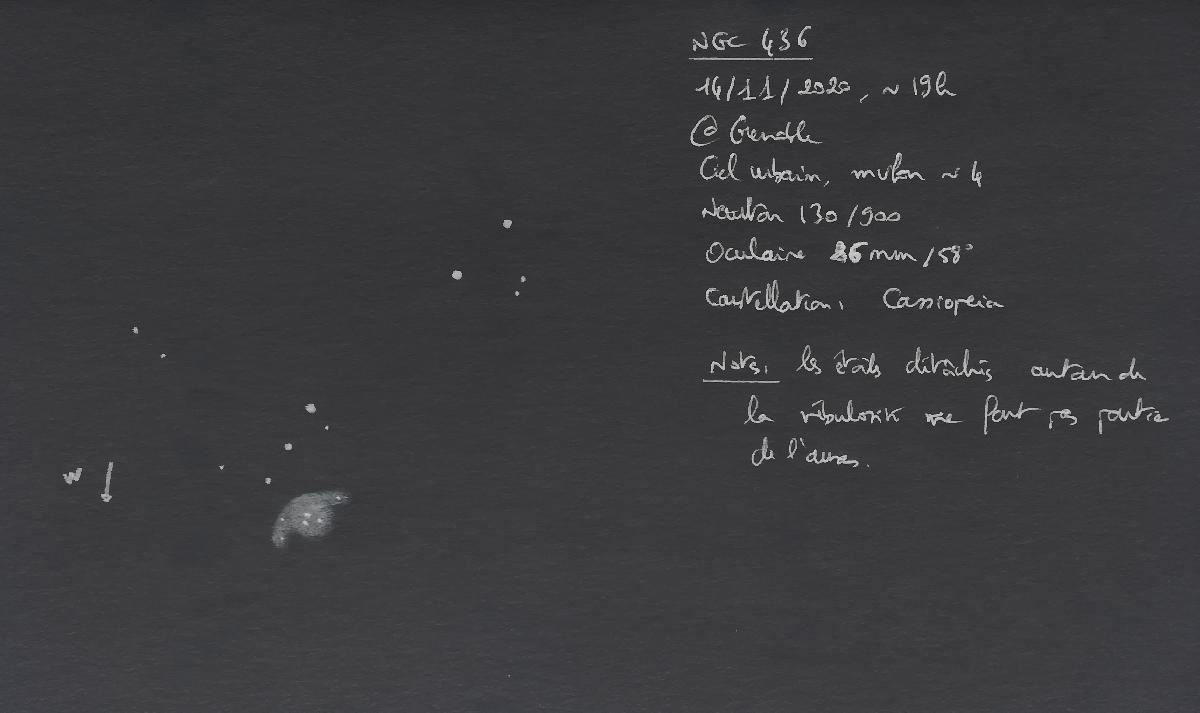 NGC 436
14/11/2020, ~ 19h
@ Grenoble
Ciel urbain, mvlon ~ 4
Newton 130/900
Oculaire 26mm/58°
Constellation: Cassiopeia
Note: les étoiles détachées autour de
la nébulosité ne font pas partie
de l'amas.
W